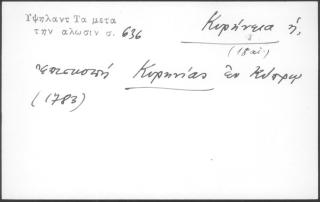 Υψηλαντ Τα μετα
την αλωσιν σ. 636
Κυρήνεια ἡ,
(18 αἰ.)
ἐπισκοπὴ Κυρηνίας ἐν Κύπρῳ
(1783)